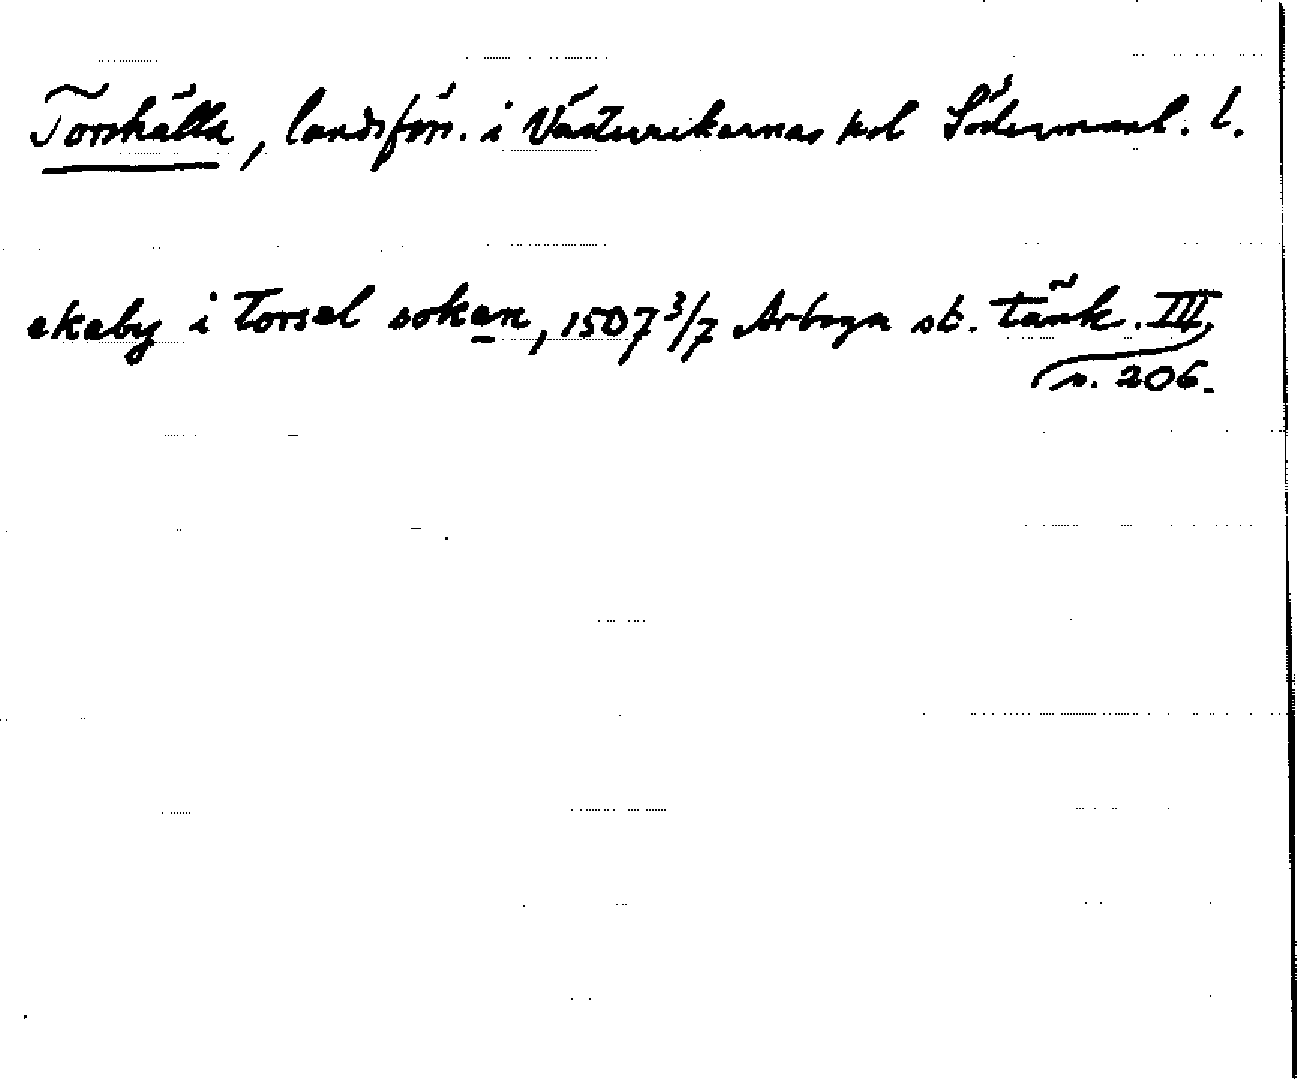 Torshälla, landsförs. i Västerrekarnas hd Södermanl. l.
ekeby i torsel soken, 1507 3/7 Arboga st. tänk. III,
s. 206.